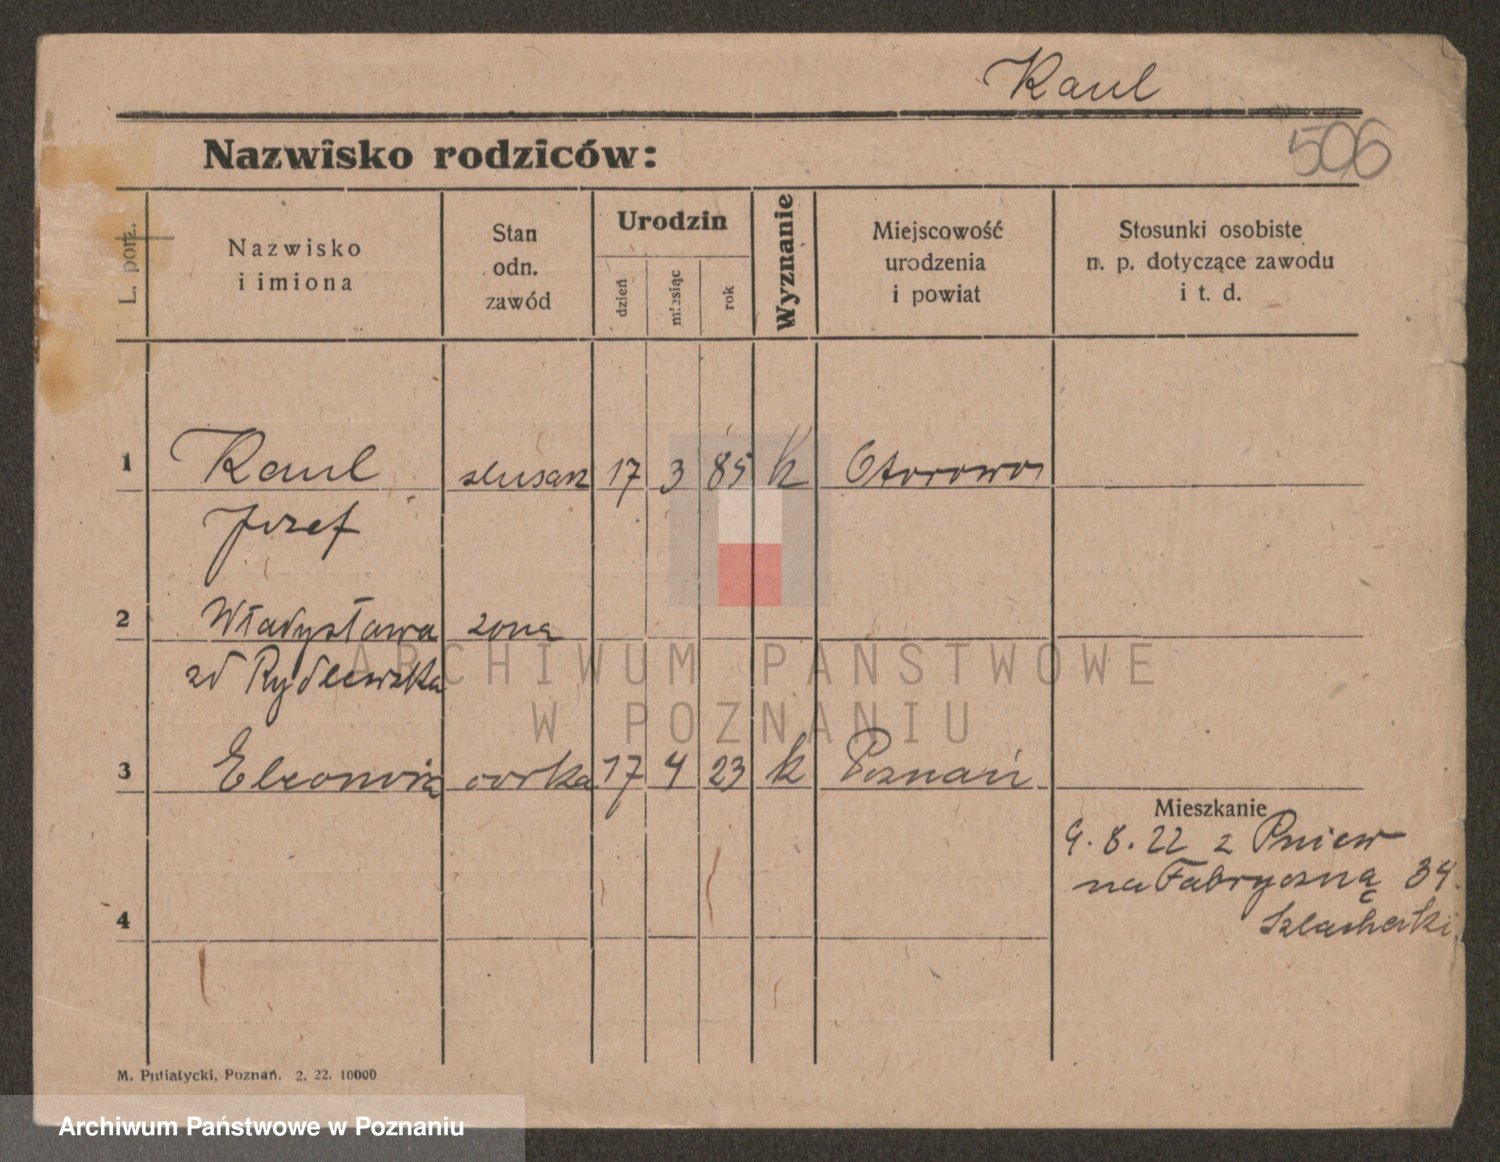 Kaul
506
Nazwisko rodziców:
L. porz.
Nazwisko i imiona
Stan odn. zawód
Urodzin
dzień
miesiąc
rok
Wyznanie
Miejscowość urodzenia i powiat
Stosunki osobiste n. p. dotyczące zawodu i t. d.
1 Kaul ślusarz 17 3 85 k Otorowo
Józef
2 Władysława żona
zd Rydlewska
3 Eleonora córka 17 4 23 k Poznań
Mieszkanie
9. 8. 22 z Pniew
na Fabryczną 34.
4
Szlachecki
M. Putiatycki, Poznań. 2. 22. 10000
ARCHIWUM PAŃSTWOWE
W POZNANIU
Archiwum Państwowe w Poznaniu